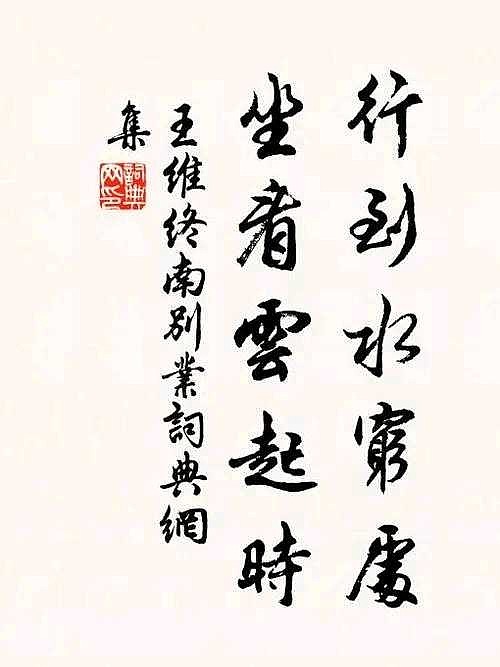 行到水窮處
坐看雲起時
王維終南別業詞典網
集
詞典
网印